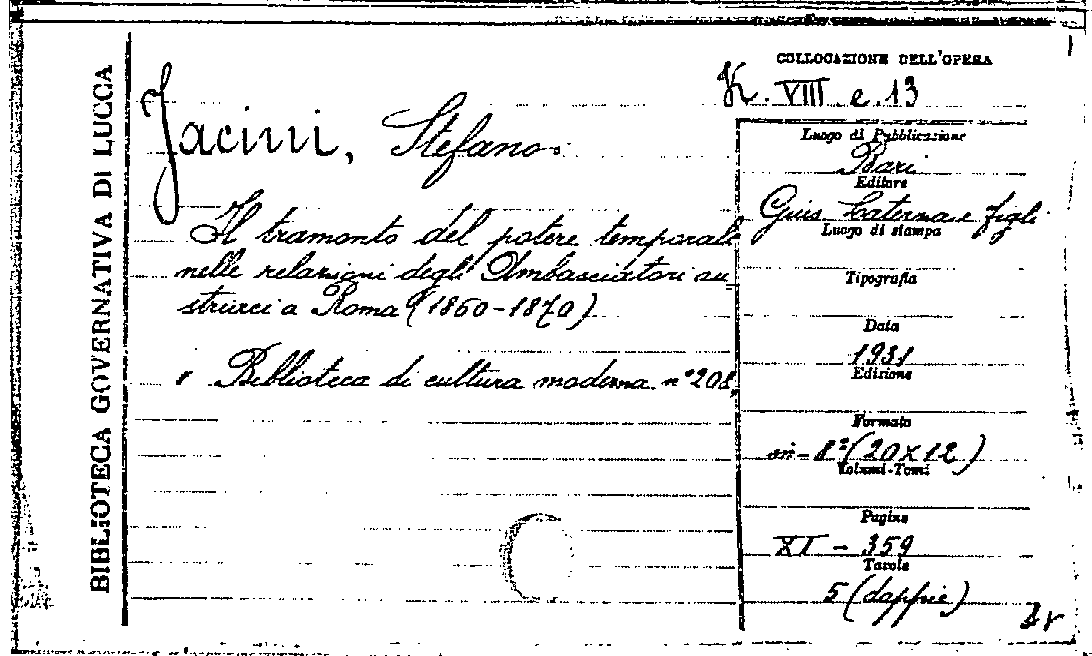 BIBLIOTECA GOVERNATIVA DI LUCCA
COLLOCAZIONE DELL'OPERA
K. VIII e. 13
Jacini, Stefano.
Il tramonto del potere temporale
nelle relazioni degli Ambasciatori au
striaci a Roma (1860-1870)
Biblioteca di cultura moderna n° 208
Luogo di Pubblicazione
Bari
Editore
Gius. Laterza e figli
Luogo di stampa
Tipografia
Data
1931
Edizione
Formato
in-8° (20x12)
Volumi-Tomi
Pagine
XI - 359
Tavole
5 (doppie)